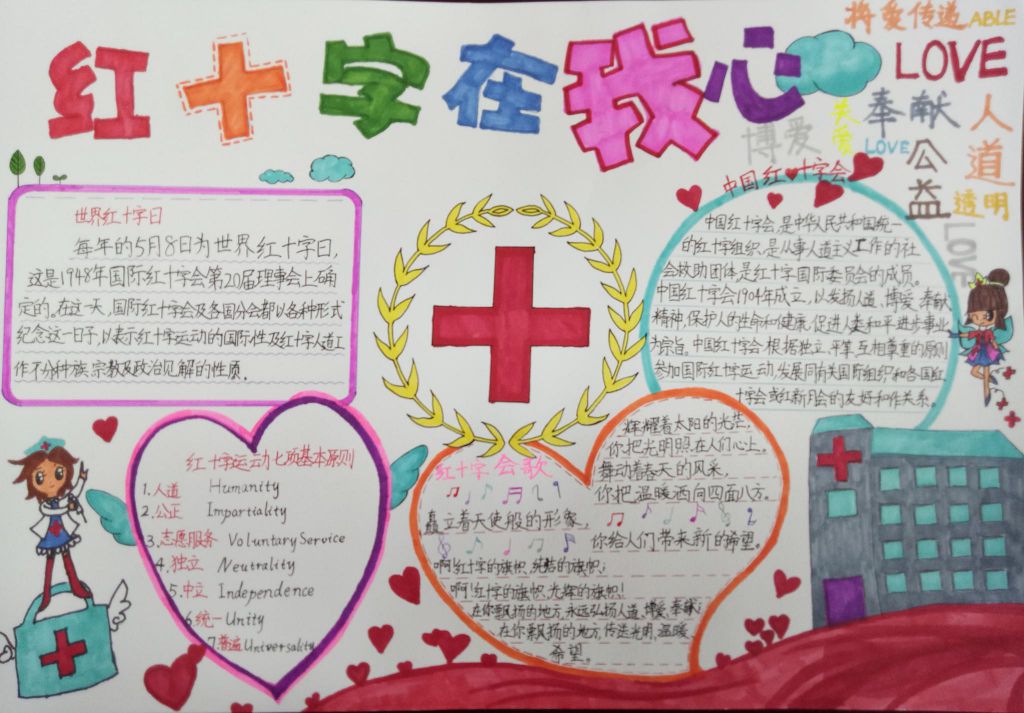 红十字在我心
将爱传递 ABLE
LOVE
博爱
关爱
奉献
人道
LOVE
公益
透明
LOVE
世界红十字日
每年的5月8日为世界红十字日,
这是1948年国际红十字会第20届理事会上确
定的。在这一天,国际红十字会及各国分会都以各种形式
纪念这一日子,以表示红十字运动的国际性及红十字人道工
作不分种族、宗教及政治见解的性质.
中国红十字会
中国红十字会,是中华人民共和国统一
的红十字组织,是从事人道主义工作的社
会救助团体是红十字国际委员会的成员。
中国红十字会1904年成立,以发扬人道、博爱、奉献
精神,保护人的生命和健康,促进人类和平进步事业
为宗旨。中国红十字会根据独立、平等、互相尊重的原则
参加国际红十字运动,发展同有关国际组织和各国红
十字会或红新月会的友好和作关系。
红十字运动七项基本原则
1.人道 Humanity
2.公正 Impartiality
3.志愿服务 Voluntary Service
4.独立 Neutrality
5.中立 Independence
6统一 Unity
7.普遍 Universality
红十字会歌
辉耀着太阳的光芒,
你把光明照在人们心上。
舞动着春天的风采,
你把温暖洒向四面八方。
矗立着天使般的形象,
你给人们带来新的希望。
啊!红十字的旗帜,纯洁的旗帜;
啊!红十字的旗帜,光辉的旗帜!
在你飘扬的地方,永远弘扬人道、博爱、奉献;
在你飘扬的地方,传送光明、温暖、
希望。